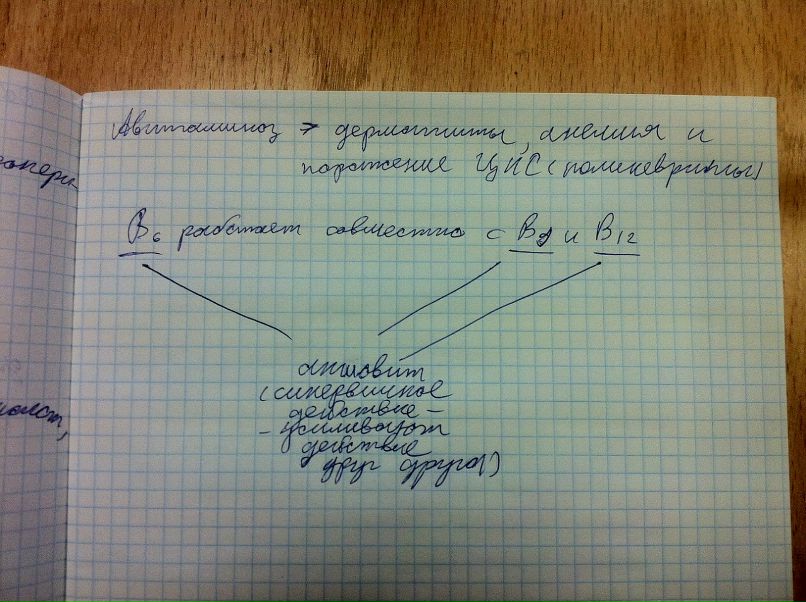 Авитаминоз → дерматиты, анемия и
поражение ЦНС (полиневриты)
B6 работает совместно с B9 и B12
ангиовит
(синергичное
действие –
– усиливают
действие
друг друга)